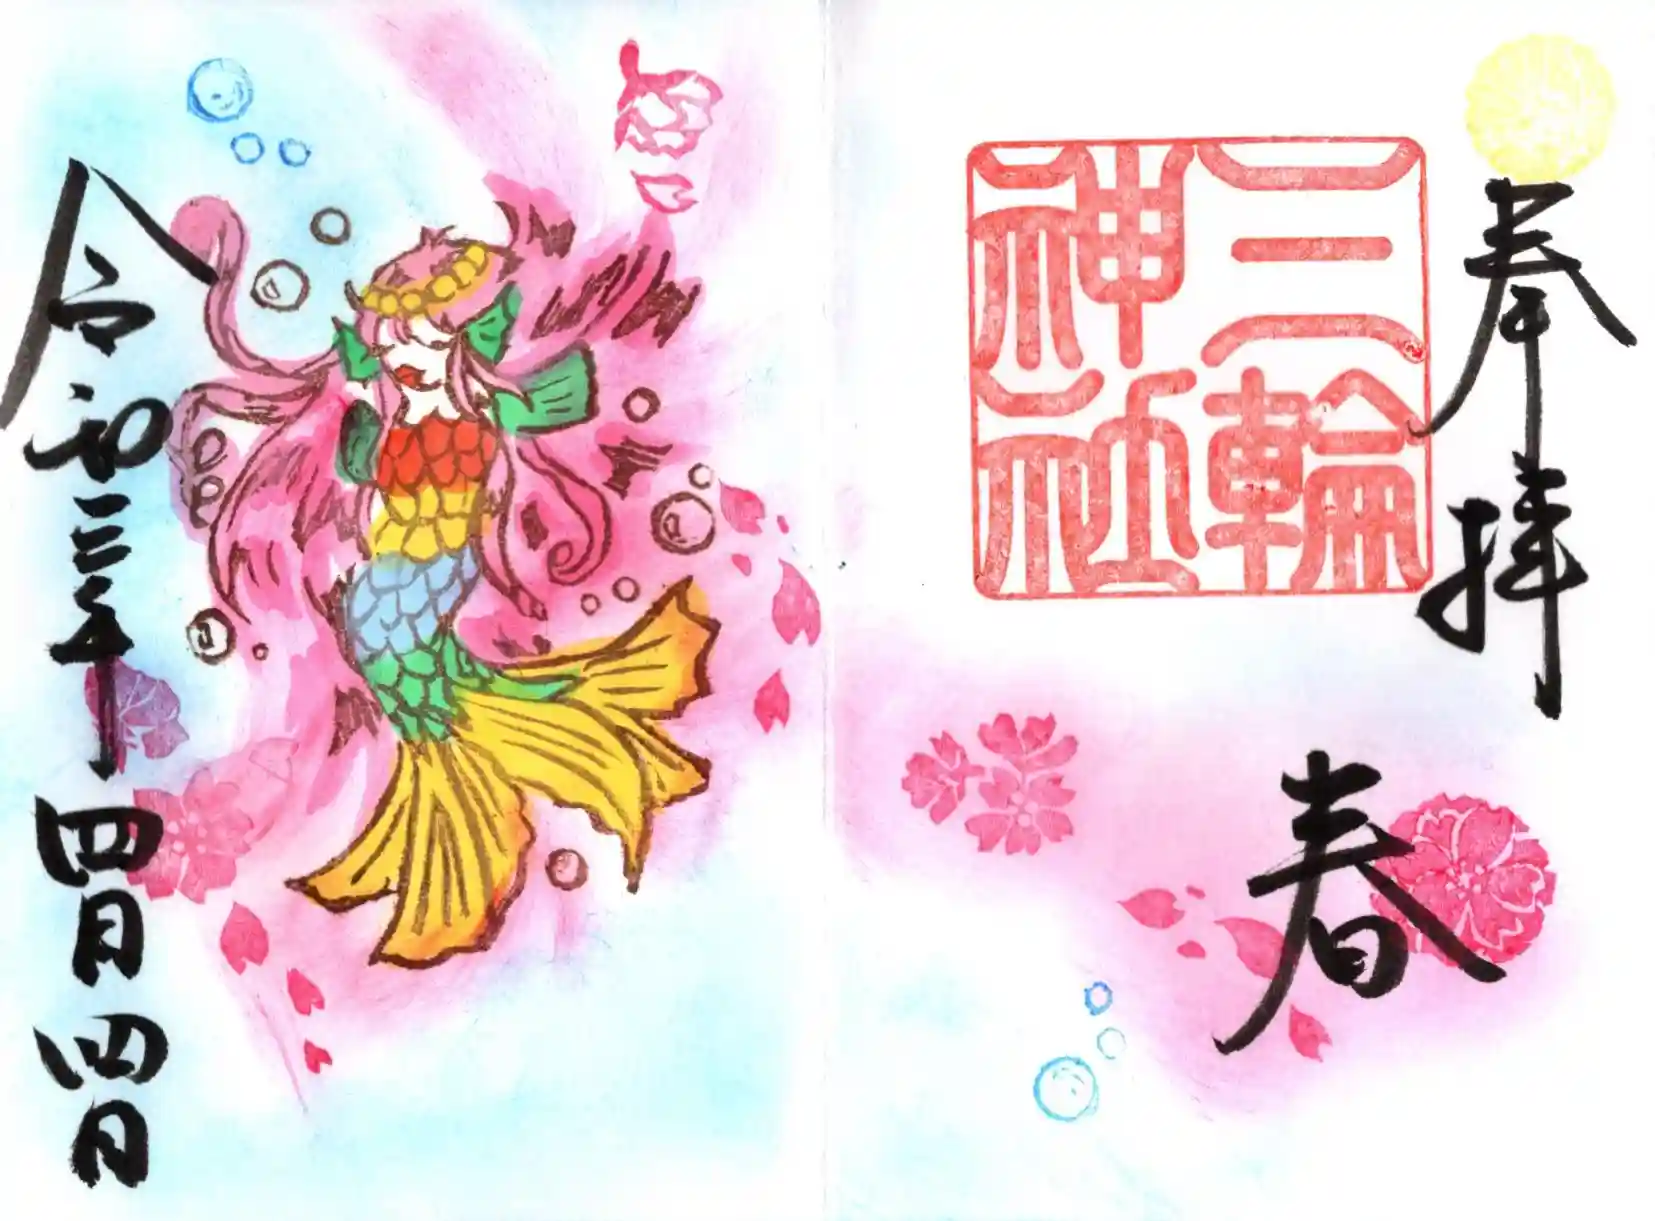 奉拝
春
三輪
神社
令和三年四月四日